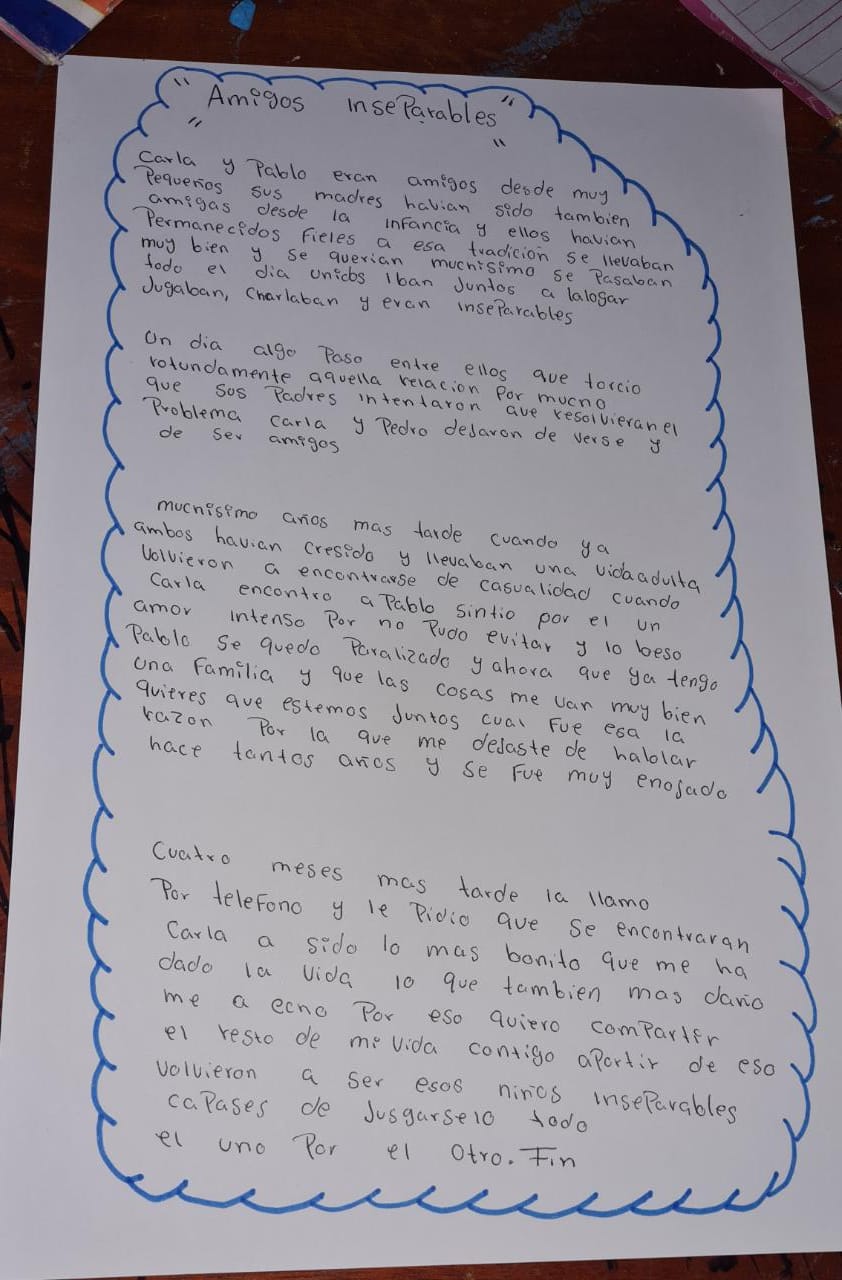 "Amigos inseparables"
Carla y Pablo eran amigos desde muy
Pequeños sus madres havian sido tambien
amigas desde la infancia y ellos havian
Permanecidos fieles a esa tradicion se llevaban
muy bien y se querian muchisimo se Pasaban
todo el dia unidos Iban Juntos a lalogar
Jugaban, Charlaban y eran inseParables
Un dia algo Paso entre ellos que torcio
rotundamente aquella relacion Por mucho
que sus Padres intentaron que resolvieran el
Problema Carla y Pedro dejaron de verse y
de ser amigos
muchisimo años mas tarde cuando ya
ambos havian cresido y llevaban una vida adulta
Volvieron a encontrarse de casualidad cuando
Carla encontro a Pablo sintio por el un
amor intenso Por no Pudo evitar y lo beso
Pablo se quedo Paralizado y ahora que ya tengo
una familia y que las cosas me van muy bien
quieres que estemos Juntos cual Fue esa la
razon Por la que me dejaste de hablar
hace tantos años y se Fue muy enojado
Cuatro meses mas tarde la llamo
Por teleFono y le Pidio que se encontraran
Carla a sido lo mas bonito que me ha
dado la vida lo que tambien mas daño
me a echo Por eso quiero compartir
el resto de mi vida contigo aPartir de eso
Volvieron a ser esos niños inseParables
caPases de Jusgarselo todo
el uno Por el Otro. Fin